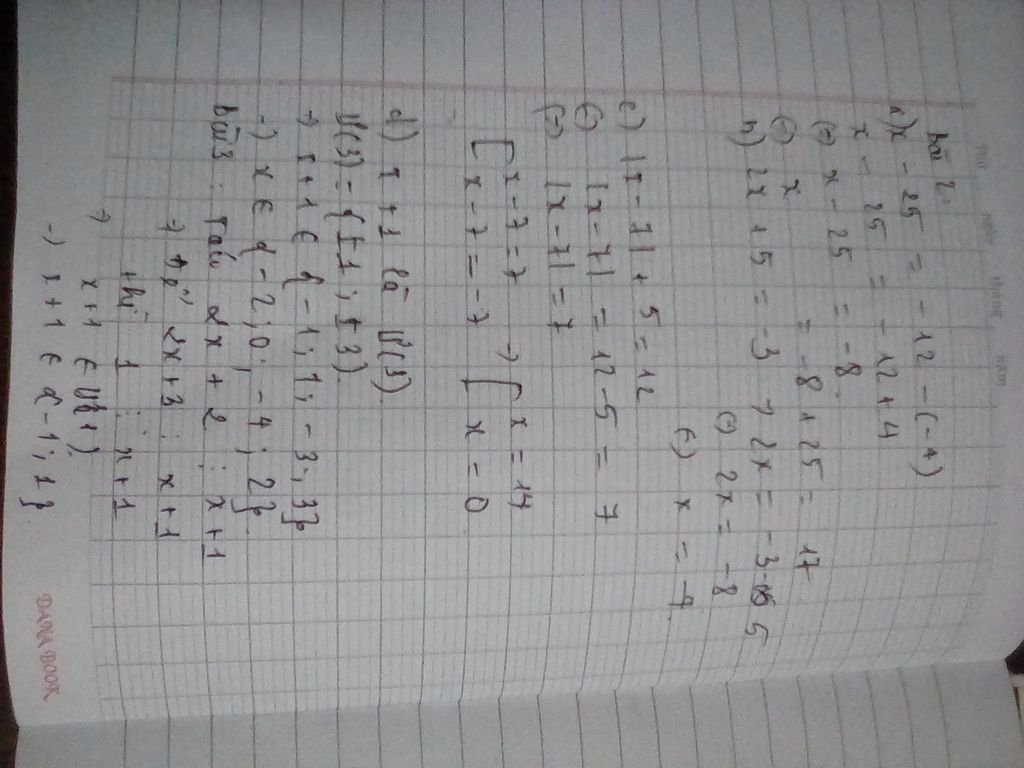 Bài 2:
a) x - 25 = - 12 - (-4)
x - 25 = - 12 + 4
(=) x - 25 = -8
(=) x = -8 + 25 = 17
b) 2x + 5 = -3 → 2x = -3 - 5
(=) 2x = -8
(=) x = -4
c) |x - 7| + 5 = 12
(=) |x - 7| = 12 - 5 = 7
(=) |x - 7| = 7
[ x - 7 = 7 → [ x = 14
x - 7 = -7 x = 0
d) x + 1 là Ư(3).
Ư(3) = { ±1; ±3}.
→ x + 1 ∈ { -1; 1; -3; 3}
→ x ∈ { -2; 0; -4; 2}
Bài 3: 2x + 2 ⋮ x + 1
2x + 3 ⋮ x + 1
1 ⋮ x + 1
→ x + 1 ∈ Ư(1)
→ x + 1 ∈ { -1; 1}
DARIA BOOK